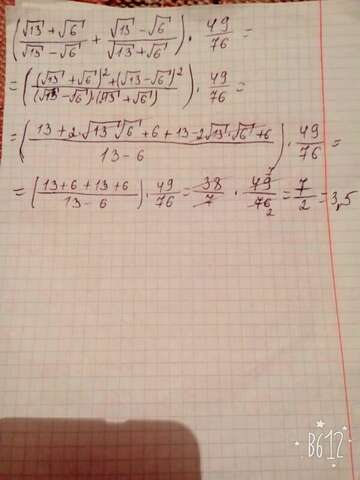 (√13 + √6 / √13 − √6 + √13 − √6 / √13 + √6) · 49/76 =
= ((√13 + √6)² + (√13 − √6)² / (√13 − √6) · (√13 + √6)) · 49/76 =
= (13 + 2 · √13 √6 + 6 + 13 − 2√13 · √6 + 6 / 13 − 6) · 49/76 =
= (13 + 6 + 13 + 6 / 13 − 6) · 49/76 = 38/7 · 49 7/76 2 = 7/2 = 3,5
B612